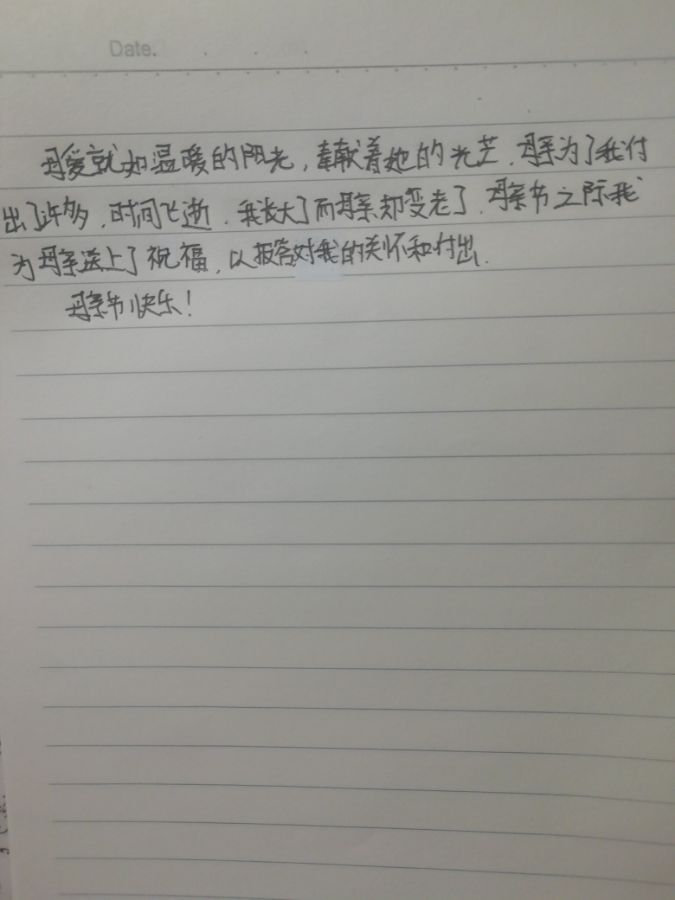 Date.
母爱就如温暖的阳光，奉献着她的光芒．母亲为了我付
出了许多．时间飞逝．我长大了而母亲却变老了．母亲节之际我
为母亲送上了祝福，以报答对我的关怀和付出．
母亲节快乐！